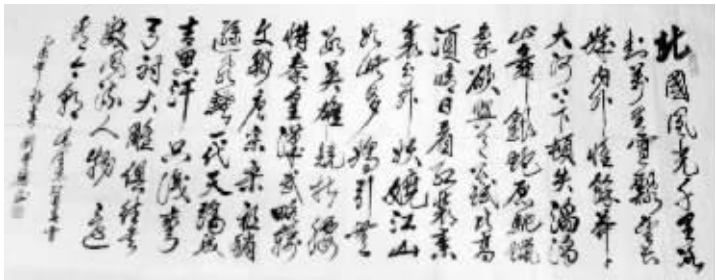 北國風光千里冰
封萬里雪飄望長
城內外惟餘莽莽
大河上下頓失滔滔
山舞銀蛇原馳蠟
象欲與天公試比高
須晴日看紅裝素
裹分外妖嬈江山
如此多嬌引無
數英雄競折腰
惜秦皇漢武略輸
文彩唐宗宋祖稍
遜風騷一代天驕成
吉思汗只識彎
弓射大雕俱往矣
數風流人物還
看今朝